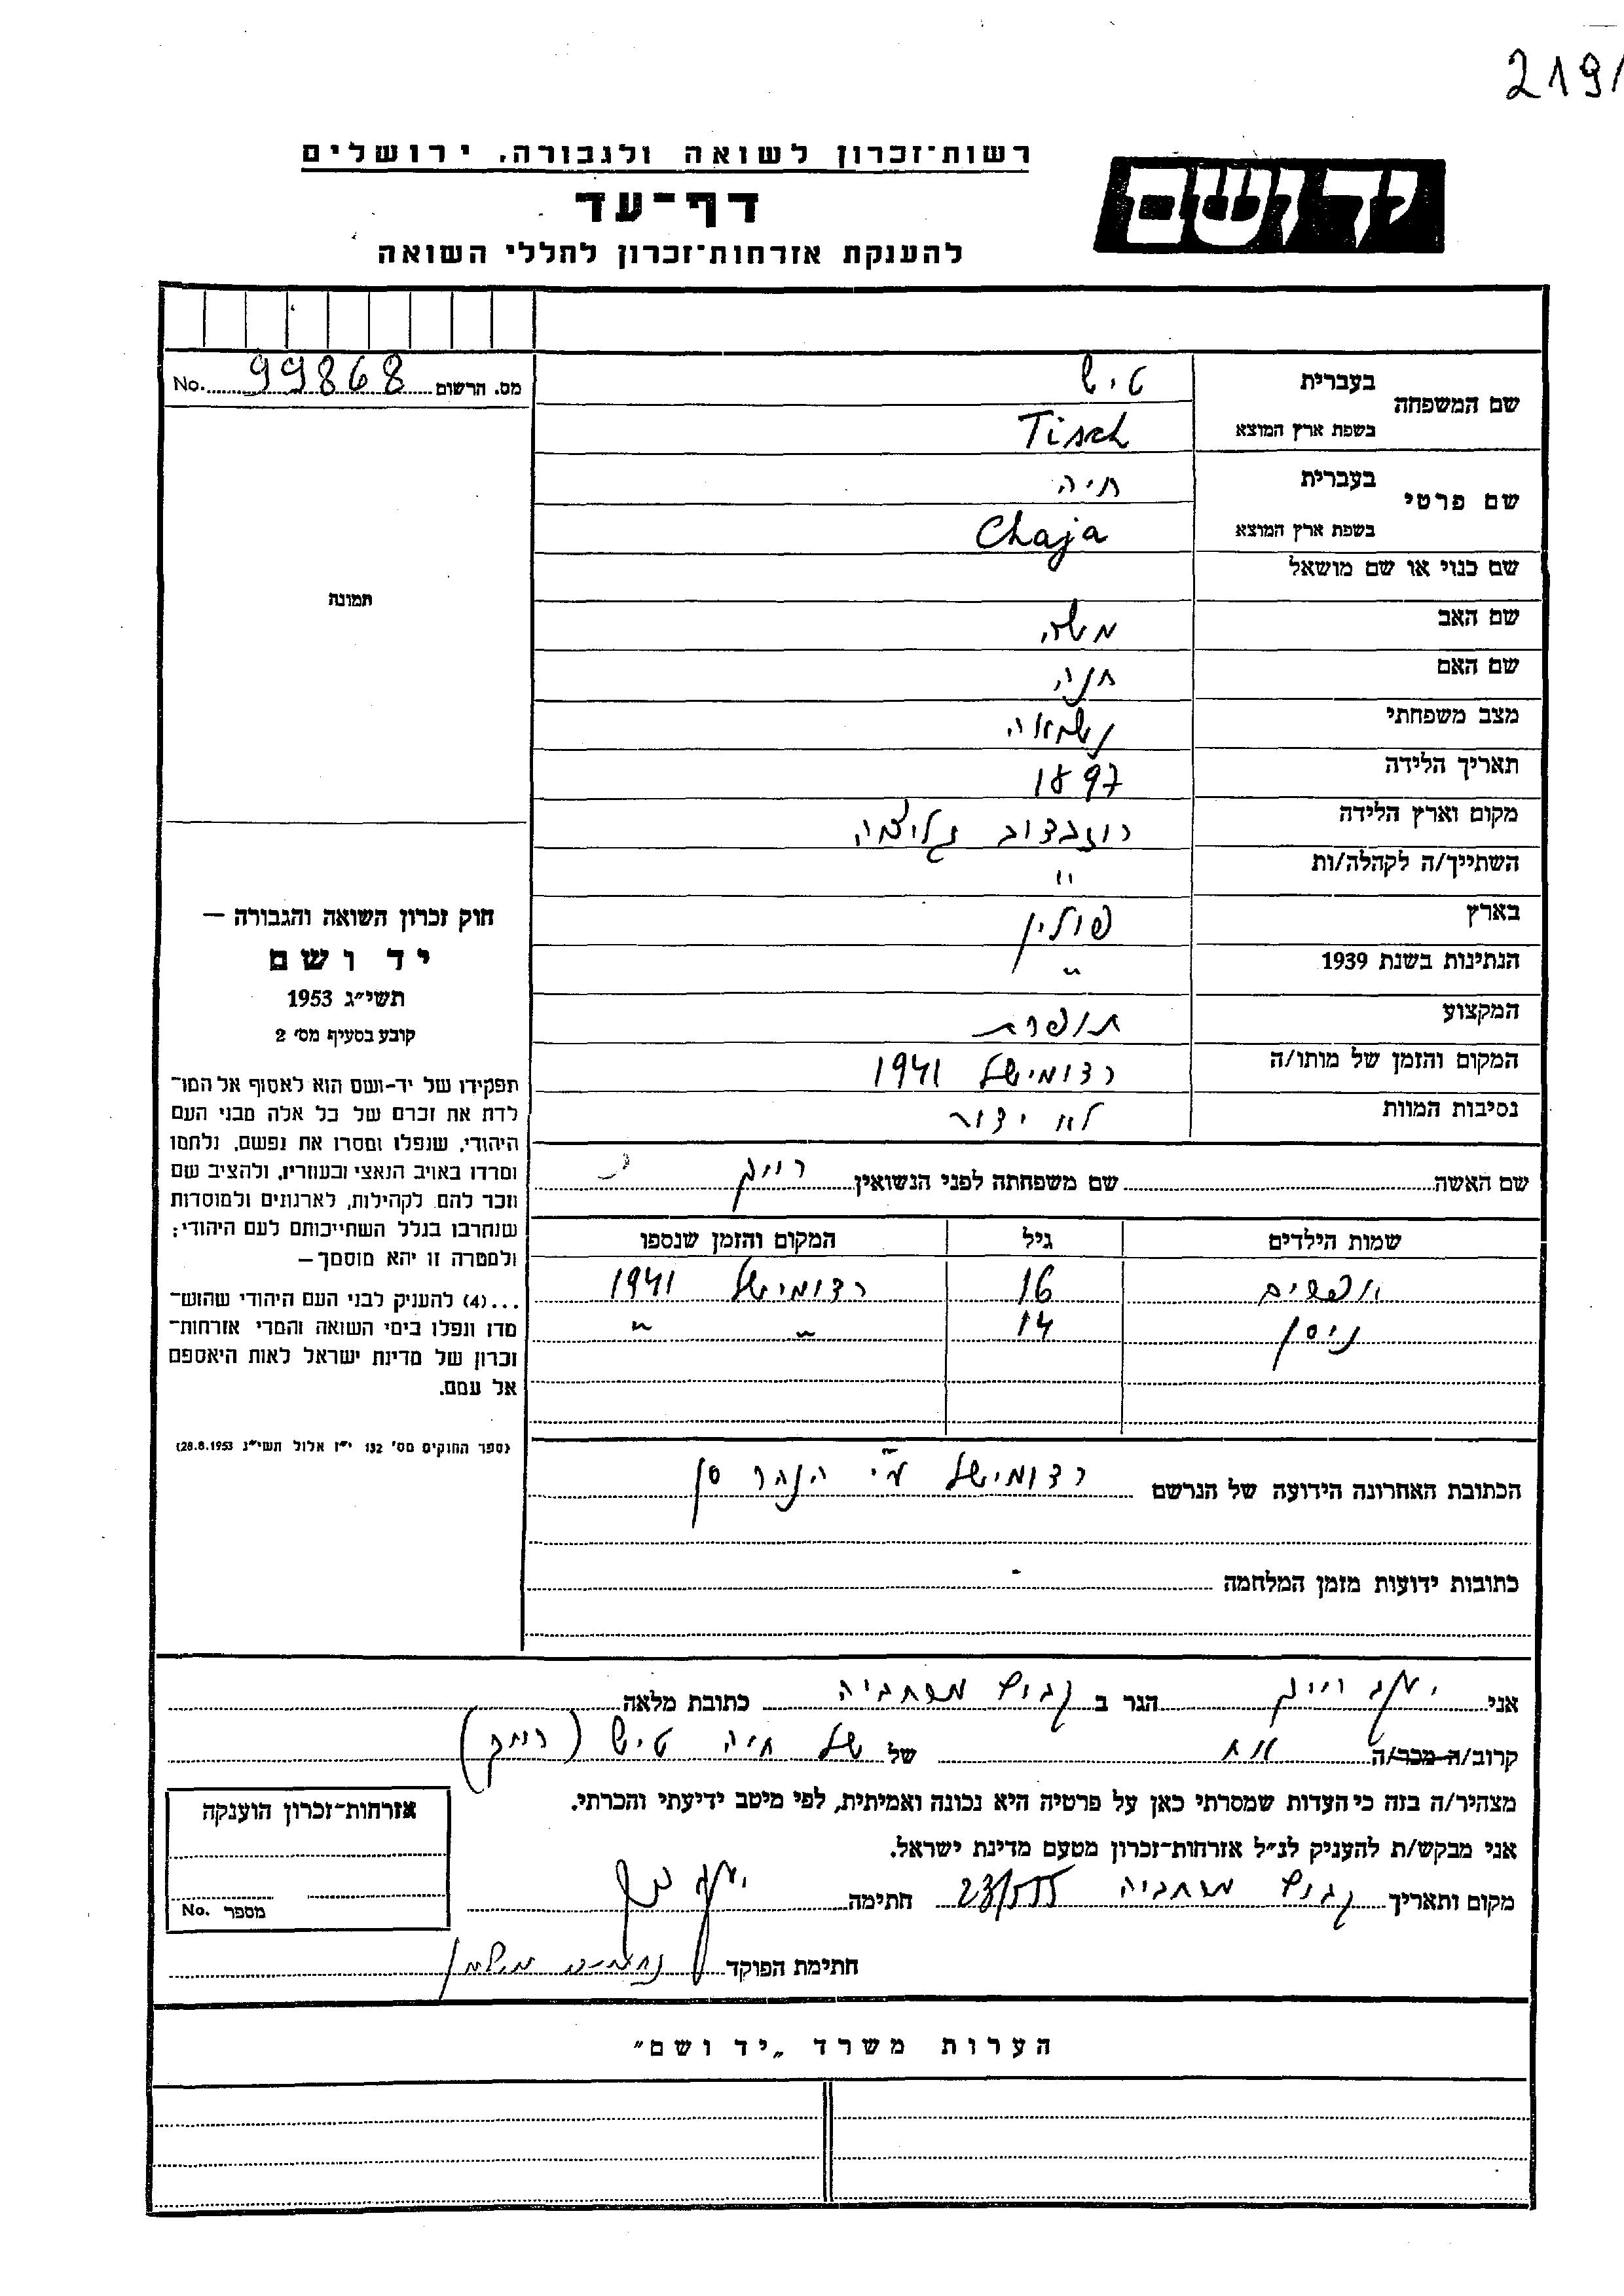 219
רשות־זכרון לשואה ולגבורה, ירושלים
יד ושם
דף־עד
להענקת אזרחות־זכרון לחללי השואה
מס. הרשום 99868 No.
תמונה
חוק זכרון השואה והגבורה —
יד ושם
תשי״ג 1953
קובע בסעיף מס׳ 2
תפקידו של יד-ושם הוא לאסוף אל המו־
לדת את זכרם של כל אלה מבני העם
היהודי, שנפלו ומסרו את נפשם, נלחמו
ומרדו באויב הנאצי ובעוזריו, ולהציב שם
וזכר להם, לקהילות, לארגונים ולמוסדות
שנחרבו בגלל השתייכותם לעם היהודי;
ולמטרה זו יהא מוסמך —
...(4) להעניק לבני העם היהודי שהוש־
מדו ונפלו בימי השואה והמרי אזרחות־
זכרון של מדינת ישראל לאות היאספם
אל עמם.
(ספר החוקים מס׳ 132 י״ז אלול תשי״ג 28.8.1953)
שם המשפחה בעברית טיש
בשפת ארץ המוצא Tisch
שם פרטי בעברית חיה
בשפת ארץ המוצא Chaja
שם כנוי או שם מושאל
שם האב משה
שם האם חנה
מצב משפחתי נשואה
תאריך הלידה 1897
מקום וארץ הלידה רוזבדוב גליציה
השתייך/ה לקהלה/ות "
בארץ פולין
הנתינות בשנת 1939 "
המקצוע תופרת
המקום והזמן של מותו/ה רדומישל 1941
נסיבות המוות לא ידוע
שם האשה שם משפחתה לפני הנשואין רייך
שמות הילדים גיל המקום והזמן שנספו
אפרים 16 רדומישל 1941
ניסן 14 " "
הכתובת האחרונה הידועה של הנרשם רדומישל ע״י הנהר סן
כתובות ידועות מזמן המלחמה -
אני יעקב רייך הגר ב קבוץ מרחביה כתובת מלאה
קרוב/ה מכר/ה אח של חיה טיש (רייך)
מצהיר/ה בזה כי העדות שמסרתי כאן על פרטיה היא נכונה ואמיתית, לפי מיטב ידיעתי והכרתי.
אני מבקש/ת להעניק לנ״ל אזרחות־זכרון מטעם מדינת ישראל.
מקום ותאריך קבוץ מרחביה 23/5/55 חתימה
חתימת הפוקד
אזרחות־זכרון הוענקה
מספר No.
הערות משרד „יד ושם״